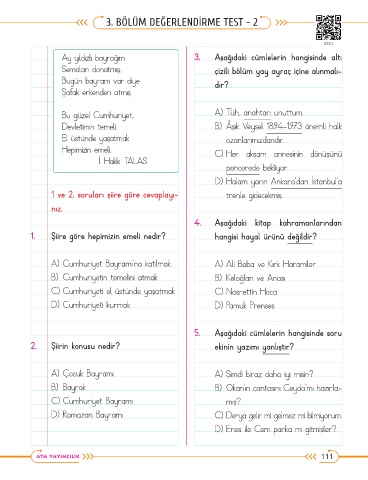 3. BÖLÜM DEĞERLENDİRME TEST - 2
2221
Ay yıldızlı bayrağım
Semaları donatmış.
Bugün bayram var diye
Şafak erkenden atmış.
Bu güzel Cumhuriyet,
Devletimin temeli.
El üstünde yaşatmak
Hepimizin emeli.
İ. Hakkı TALAS
1 ve 2. soruları şiire göre cevaplayı-
nız.
1. Şiire göre hepimizin emeli nedir?
A) Cumhuriyet Bayramı'na katılmak
B) Cumhuriyetin temelini atmak
C) Cumhuriyeti el üstünde yaşatmak
D) Cumhuriyeti kurmak
2. Şiirin konusu nedir?
A) Çocuk Bayramı
B) Bayrak
C) Cumhuriyet Bayramı
D) Ramazan Bayramı
3. Aşağıdaki cümlelerin hangisinde altı
çizili bölüm yay ayraç içine alınmalı-
dır?
A) Tüh, anahtarı unuttum.
B) Âşık Veysel 1894-1973 önemli halk
ozanlarımızdandır.
C) Her akşam annesinin dönüşünü
pencerede bekliyor.
D) Halam yarın Ankara'dan İstanbul'a
trenle gidecekmiş.
4. Aşağıdaki kitap kahramanlarından
hangisi hayal ürünü değildir?
A) Ali Baba ve Kırk Haramiler
B) Keloğlan ve Anası
C) Nasrettin Hoca
D) Pamuk Prenses
5. Aşağıdaki cümlelerin hangisinde soru
ekinin yazımı yanlıştır?
A) Şimdi biraz daha iyi misin?
B) Okan'ın çantasını Ceyda'mı hazırla-
mış?
C) Derya gelir mi gelmez mi bilmiyorum.
D) Enes ile Cem parka mı gitmişler?
ATA YAYINCILIK
111